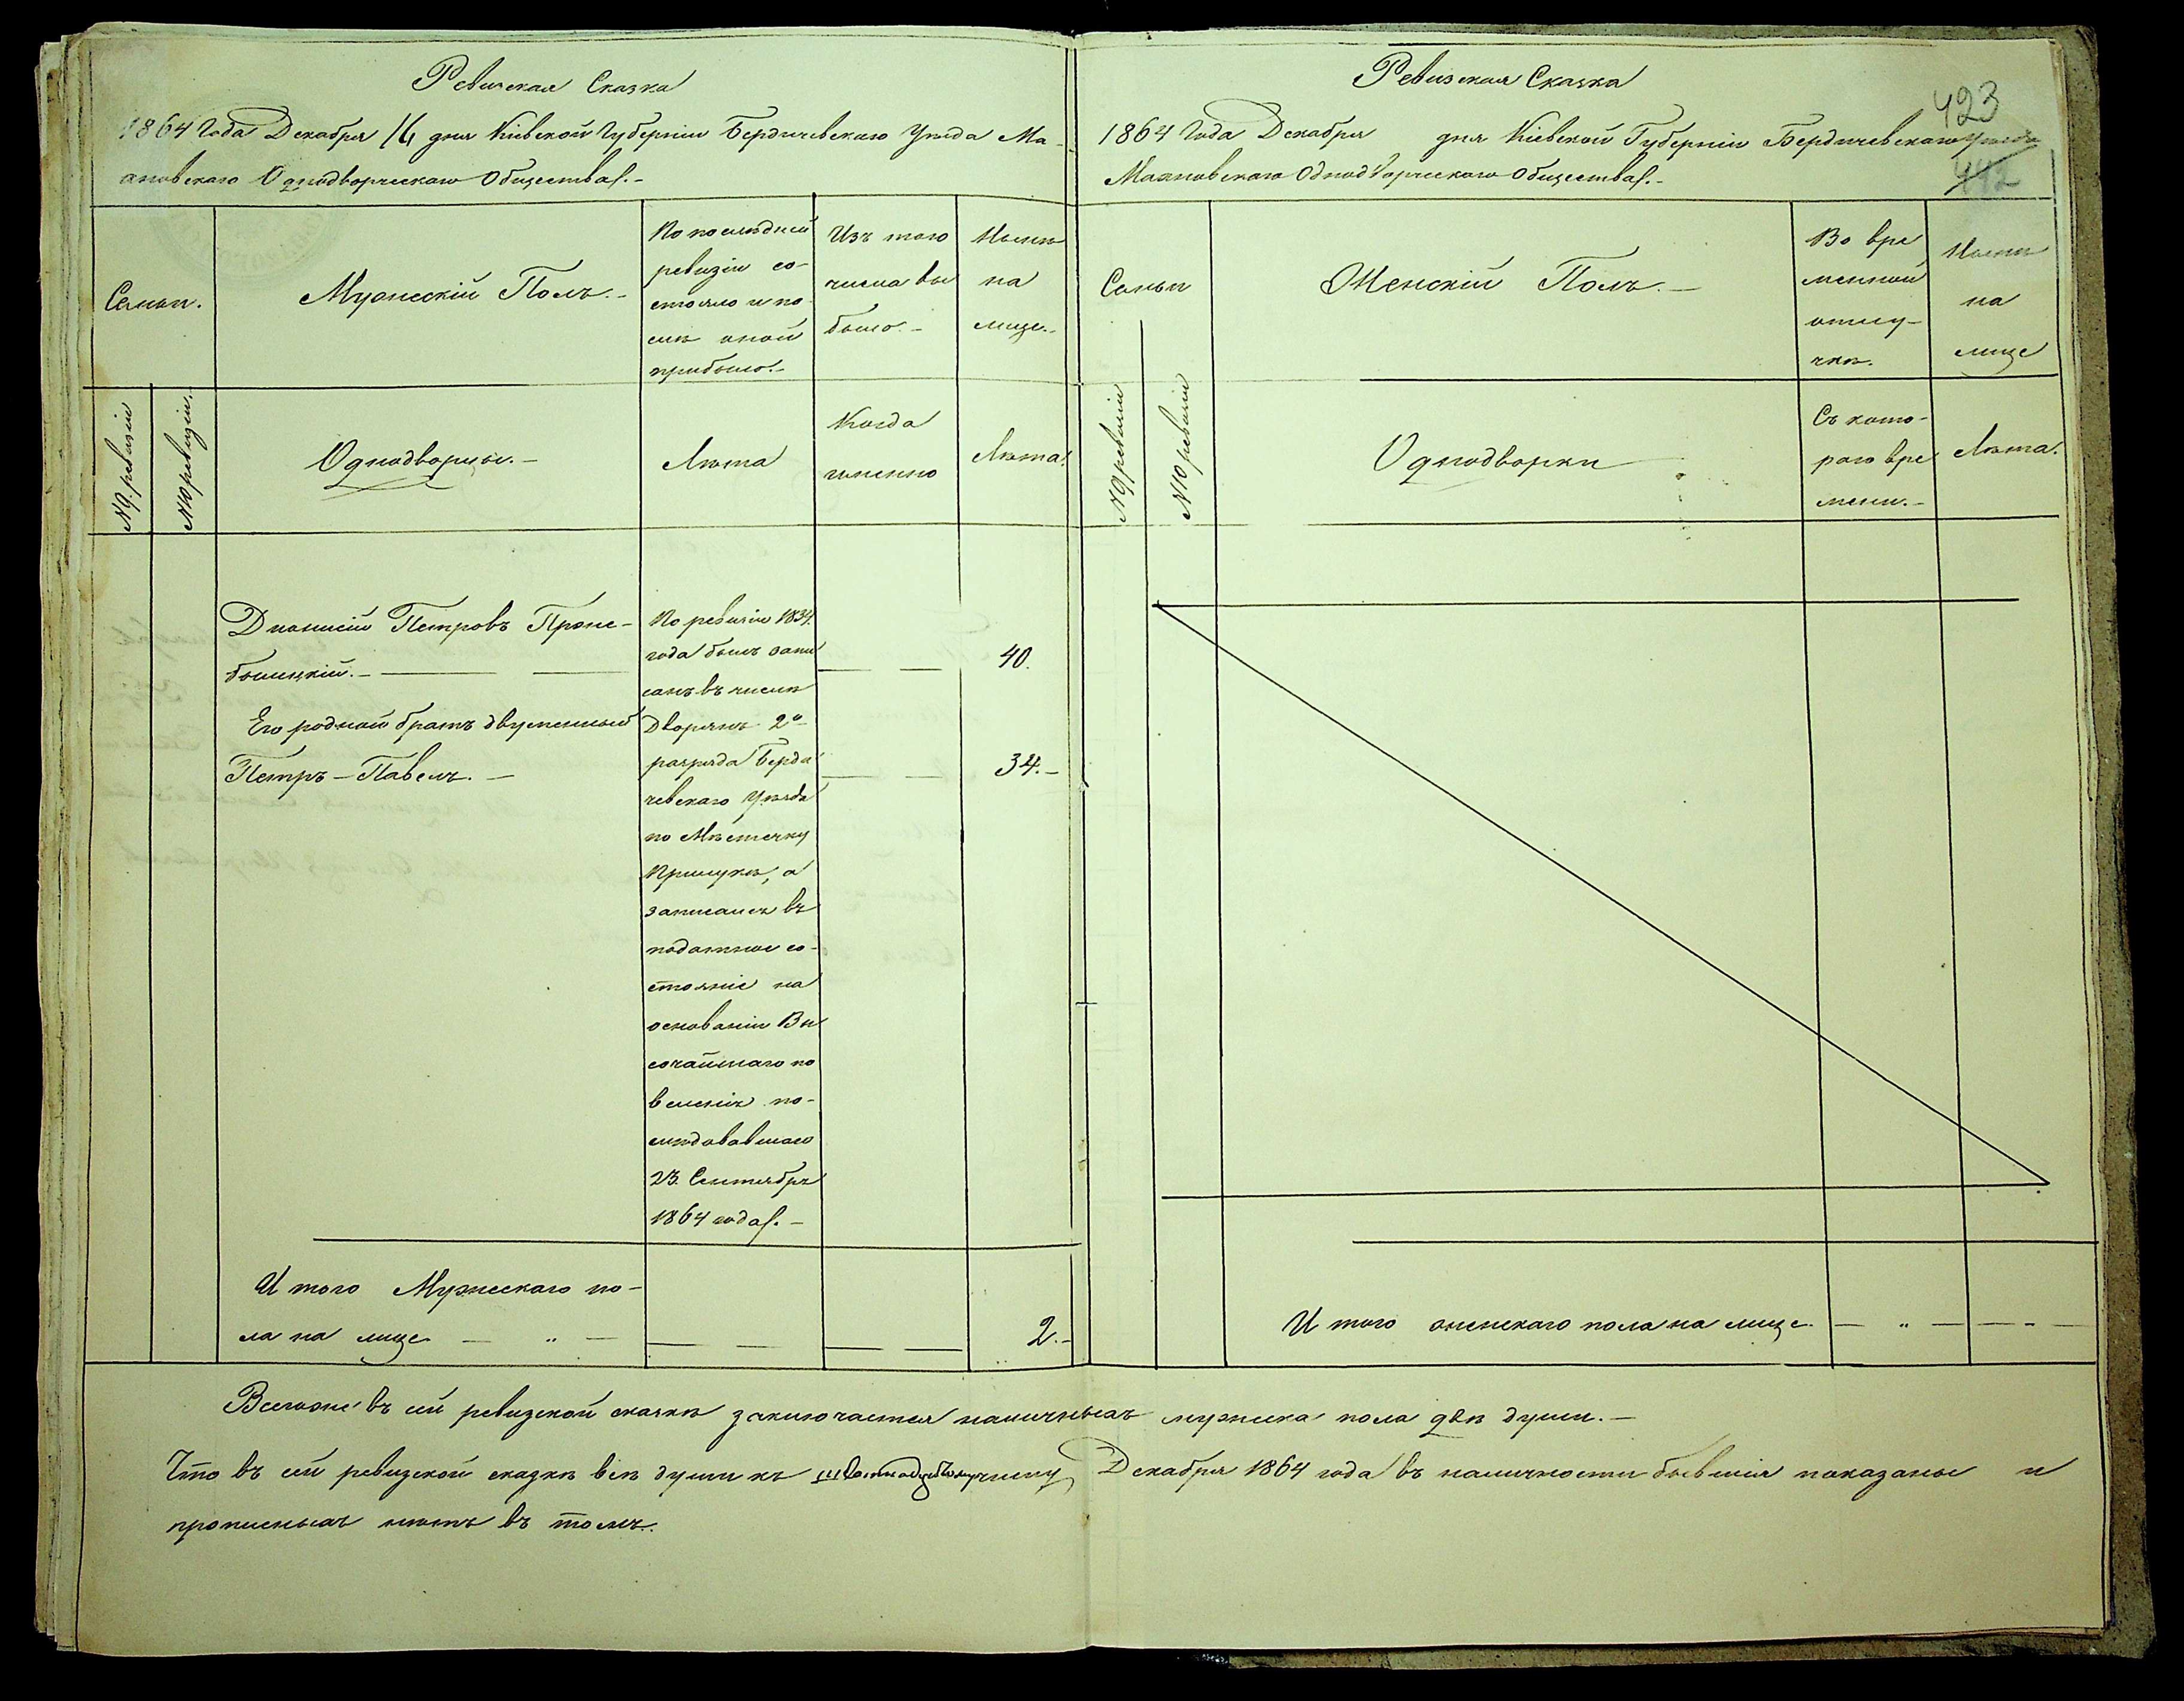 Ревизская Сказка
1864 Года Декабря 16 дня Кіевской Губерніи Бердичевскаго Уѣзда Ма-
ановскаго Однодворческаго Общества.-
Семьи.
Мужескій Полъ.-
По послѣдней
ревизіи со-
стояло и по-
слѣ оной
прибыло.-
Изъ того
числа вы
было.-
Нынѣ
на
лице.-
№ 9. ревизіи
№ 10 ревизіи.
Однодворцы.-
Лѣта
Когда
именно
Лѣта.
Діонисій Петровъ Прже-
былцкій.-
По ревизіи 1834.
года былъ запи
санъ въ числѣ
40.
Его родной братъ двуименный
Петръ-Павелъ.-
Дворянъ 2го
разряда Берди
чевскаго Уѣзда
по Мѣстечку
Прилукѣ, а
записанъ въ
податное со-
стояніе на
основаніи Вы
сочайшаго по
веленія по-
слѣдовавшаго
23. Сентября
1864 года.-
34.-
И того Мужескаго по-
ла на лице - " -
2.-
Ревизская Сказка
423
1864 Года Декабря дня Кіевской Губерніи Бердичевскаго Уѣзда
Маановскаго Однодворческаго Общества.-
442
Семьи
Женскій Полъ.-
Во вре
менной
отлу-
чкѣ.
Нынѣ
на
лице
№ 9 ревизіи
№ 10 ревизіи
Однодворки
Съ кото-
раго вре
мени.-
Лѣта.
И того женскаго пола на лице. - " - - - -
Всегоже въ сей ревизской сказкѣ заключается наличныхъ мужеска пола двѣ души.-
Что въ сей ревизской сказкѣ всѣ души къ числу Декабря 1864 года въ наличности бывшія показаны и
прописныхъ нѣтъ въ томъ.